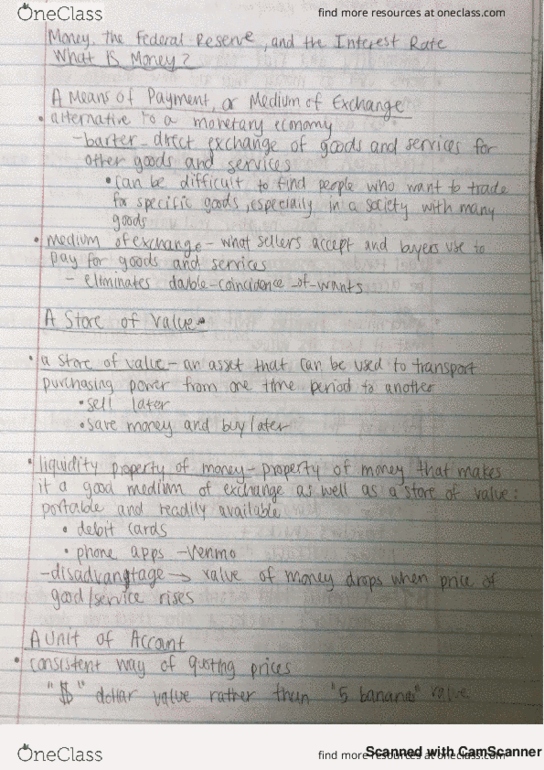 OneClass
find more resources at oneclass.com
Money, the Federal Reserve, and the Interest Rate
What IS Money?
A Means of Payment, or Medium of Exchange
• alternative to a monetary economy
- barter - direct exchange of goods and services for
other goods and services
• can be difficult to find people who want to trade
for specific goods, especially in a society with many
goods
• medium of exchange - what sellers accept and buyers use to
pay for goods and services
- eliminates double-coincidence-of-wants
A Store of Value
• a store of value - an asset that can be used to transport
purchasing power from one time period to another
• sell later
• save money and buy later
• liquidity property of money - property of money that makes
it a good medium of exchange as well as a store of value:
portable and readily available
• debit cards
• phone apps - Venmo
- disadvantage → value of money drops when price of
good/service rises
A Unit of Account
• consistent way of quoting prices
"$" dollar value rather than "5 bananas" value
OneClass
find more resources at oneclass.com
Scanned with CamScanner